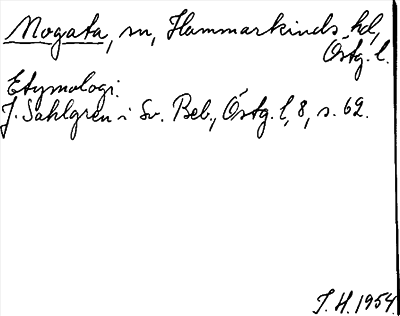 Mogata, sn, Hammarkinds hd,
Östg. l.
Etymologi.
J. Sahlgren i Sv. Beb., Östg. l, 8, s. 62.
I. H. 1954.